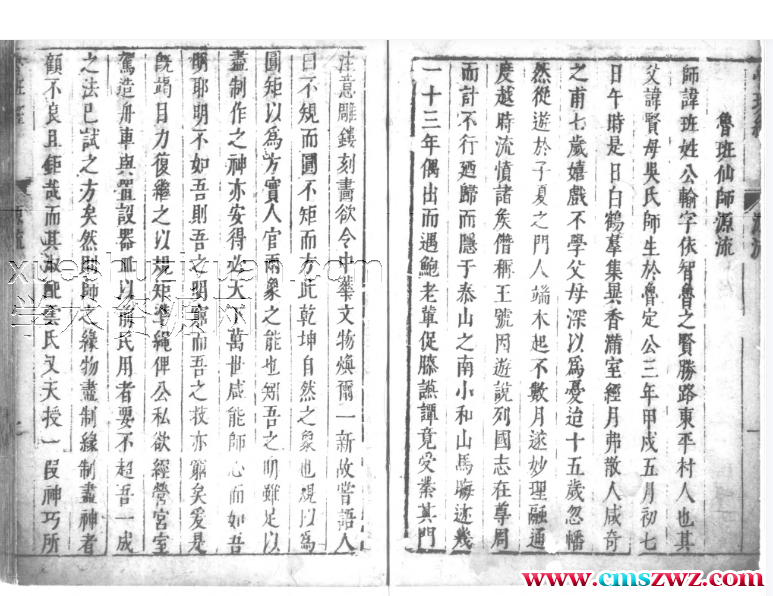 魯班仙師源流
師諱班姓公輸字依智魯之賢勝路東平村人也其
父諱賢母吳氏師生於魯定公三年甲戌五月初七
日午時是日白鶴羣集異香滿室經月弗散人咸奇
之甫七歲嬉戲不學父母深以為憂迨十五歲忽幡
然從遊於子夏之門人端木起不數月遂妙理融通
度越時流憤諸矦僭稱王號因遊說列國志在尊周
而計不行廼歸而隱于泰山之南小和山焉晦迹幾
一十三年偶出而遇鮑老輩促膝讌譚竟受業其門
注意雕鏤刻畫欲令中華文物煥爾一新故嘗語人
曰不規而圓不矩而方此乾坤自然之象也規以為
圓矩以為方實人官兩象之能也矧吾之明雖足以
盡制作之神亦安得必天下萬世咸能師心而如吾
明耶明不如吾則吾之明窮而吾之技亦窮矣爰是
旣竭目力復繼之以規矩準繩俾公私欲經營宮室
駕造舟車與置設器皿以前民用者要不超吾一成
之法已試之方矣然則師之緣物盡制緣制盡神者
顧不良且鉅哉而其淑配雲氏又天授一段神巧所
www.cmszwz.com